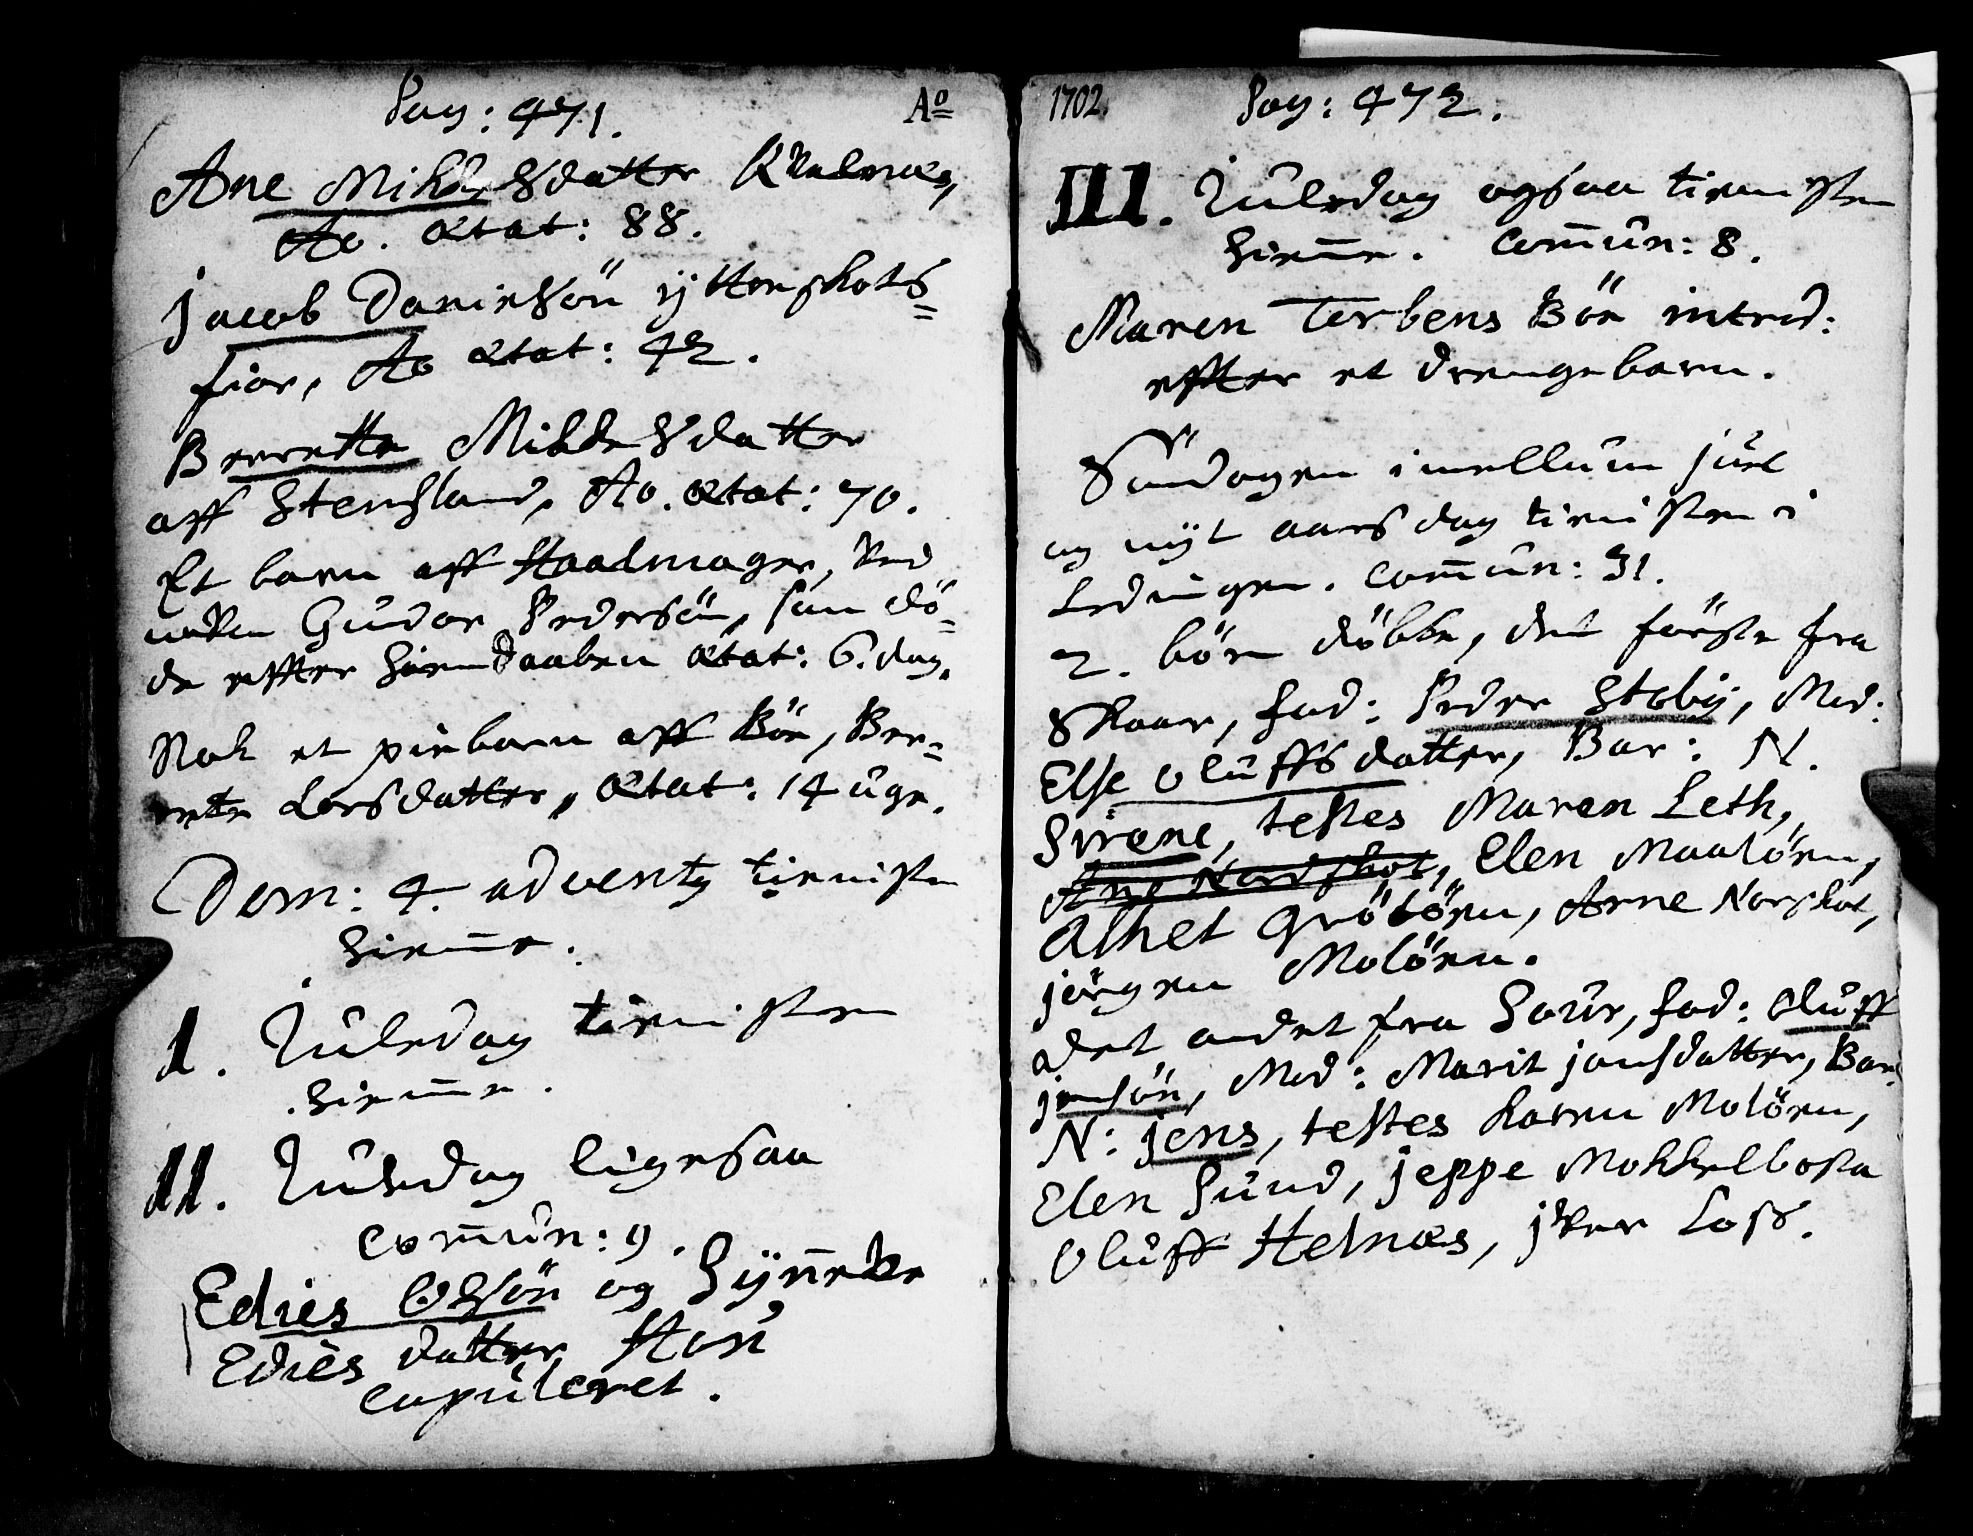 Pag: 471. Ao
Ane Mikkelsdatter Kvalnæs,
Ao. ætat: 88.
Jacob Danielsön ÿtterskots=
fior, Ao ætat: 42.
Berrette Mikkelsdatter
aff Stensland, Ao. ætat: 70.
Et barn aff Staalmager, ved
naffn Gudor Pedersön, som dö=
de effter hiemdaaben ætat: 6. dag.
Nok et piebarn aff Bör, Ber=
rete Larsdatter, ætat: 14 uge.
Dom: 4. adventg tienisten
hiem̄e.
I. Juledag tienisten
hiem̄e.
II. Juledag ligesaa
com̄un: 9.
Edies Olsön og Sÿn̄eke
Edies datter Stou
copuleret.
1702. Pag: 472.
III. Juledag ogsaa tienisten
hiem̄e. com̄un: 8.
Maren Torbens Bör introd:
effter et drengebarn.
Söndagen imellum juel
og nÿt aars dag tienisten i
Lødingen. com̄un: 31.
2. börn döbte, det förste fra
Skaar, fad: Peder Stobÿ, Mod:
Else Oluffsdatter, Bar: N.
Sirene, testes Maren Leth,
Ane Norskot, Elen Maalörn,
Alhet Grötörn, Arne Norskot,
jörgen Molörn.
Det andet fra Saur, fad: Oluff
jensön, Mod: Marit jonsdatter, Bar:
N: jens, testes Karen Molörn,
Elen Sund, jeppe Mokkelbosta
Oluff Helnæs, jver Loss.